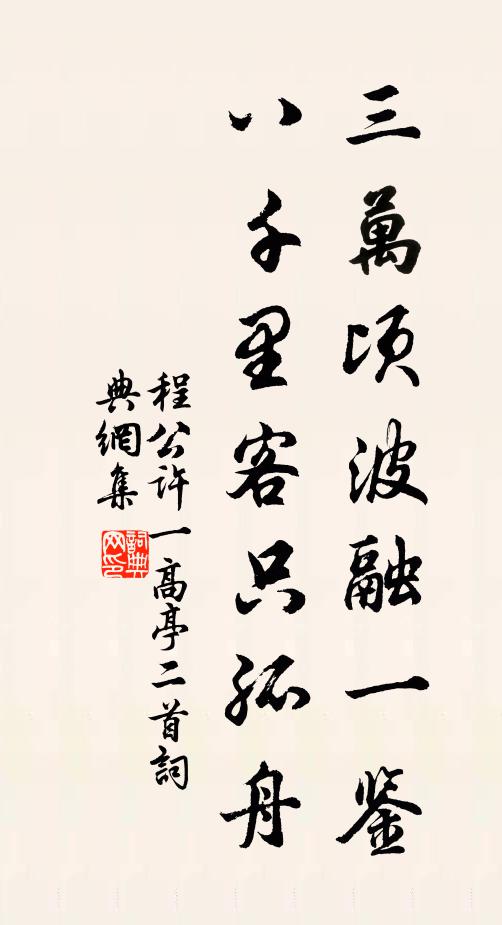 三萬頃波融一鉴
八千里客只孤舟
程公許一高亭二首詞
典網集
詞典网印